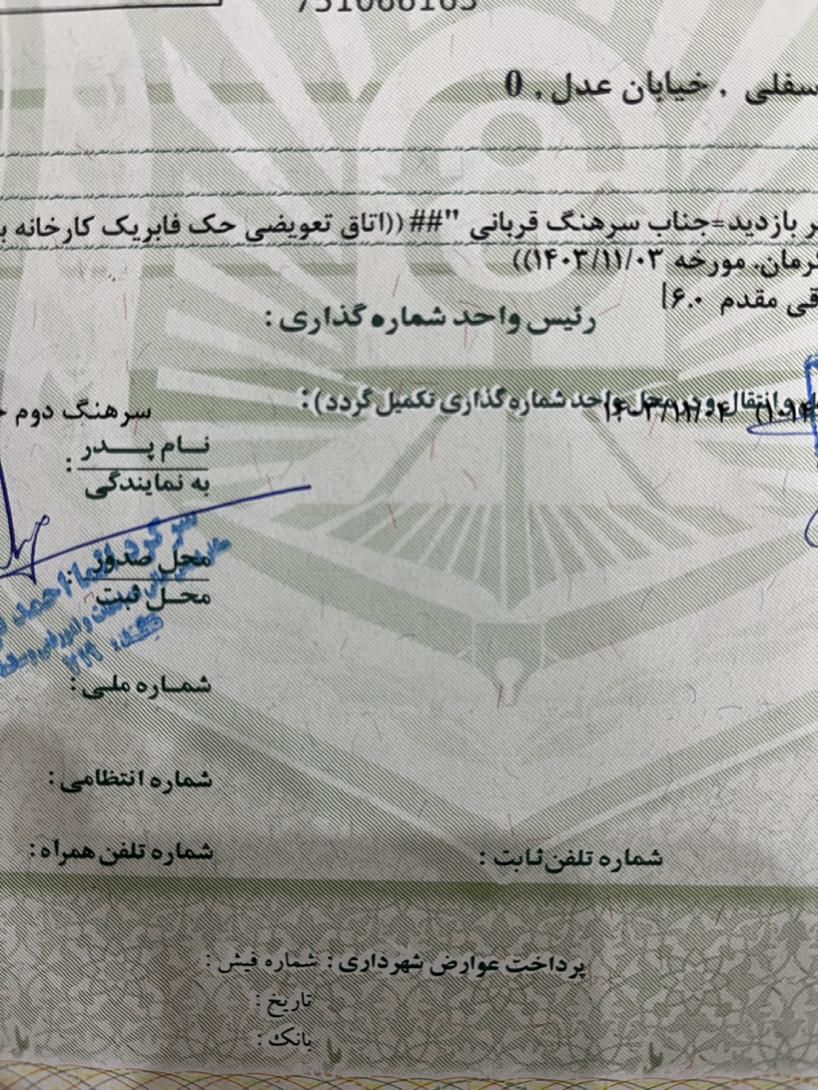 751066165
سفلی . خیابان عدل . 0
ر بازدید=جناب سرهنگ قربانی "##((اتاق تعویضی حک فابریک کارخانه ب
کرمان. مورخه ۱۴۰۳/۱۱/۰۳))
قی مقدم ۶.۰
رئیس واحد شماره گذاری :
و انتقال و در محل واحد شماره گذاری تکمیل گردد) :
سرهنگ دوم
نام پدر
به نمایندگی :
سرگرد
احمد
محل صدور
محل ثبت :
شماره ملی :
شماره انتظامی :
شماره تلفن ثابت :
شماره تلفن همراه :
پرداخت عوارض شهرداری : شماره فیش :
تاریخ :
بانک :